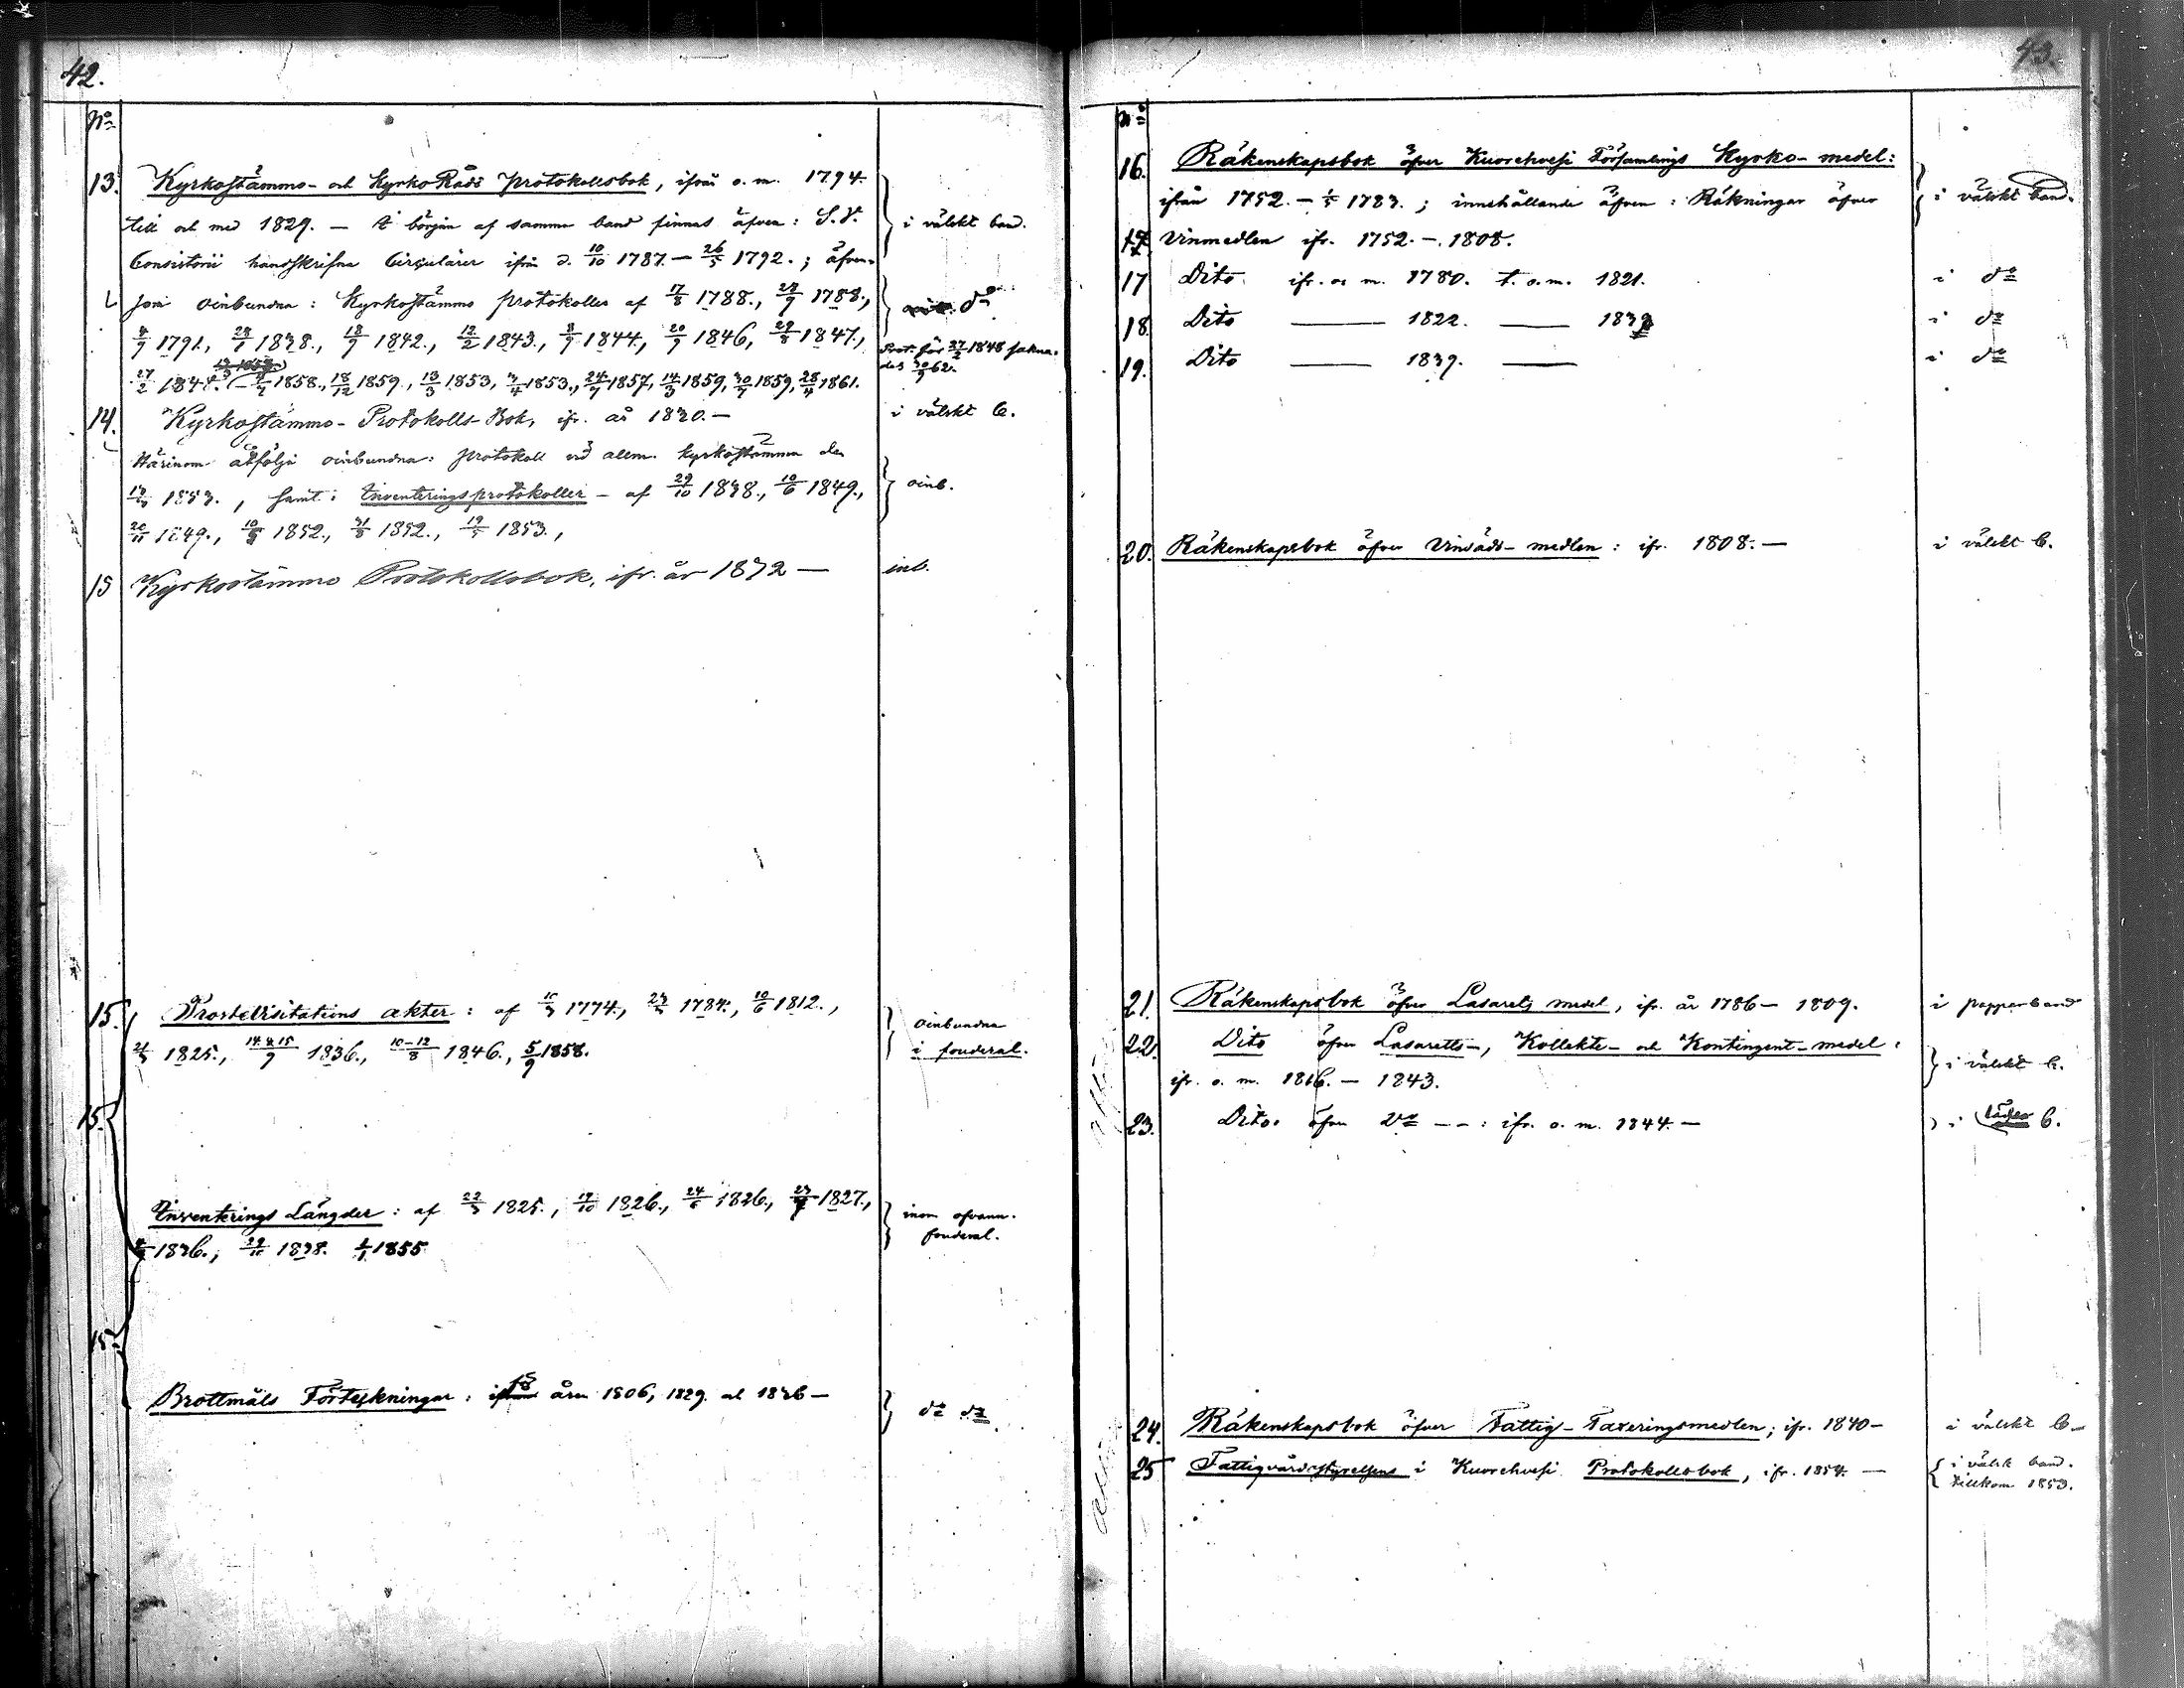 42.
No
13. Kyrkostämmo- och KyrkoRåds protokollsbok, ifrån o. m. 1794.
till och med 1829. — I början af samma band finnas äfven: S.V. } i välskt band.
Consistorii handskrifna Circulärer ifrån d. 10/10 1787. — 26/5 1792.; äfven-
som oinbundna: Kyrkostämmo protokoller af 17/8 1788., 28/9 1788., } do
1791, 1838., 18/9 1842., 12/2 1843., 8/9 1844., 20/9 1846, 29/8 1847.,
Prot. för 1848 sakna-
des 30/9 62.
27/2 1848. 1858., 18/12 1859., 13/3 1853, 1853., 24/9 1857, 14/3 1859, 1859, 28/4 1861.
14. Kyrkostämmo-Protokolls-Bok, ifr. år 1830. — i välskt b.
Härinom åtfölja oinbundna: protokoll vid allm. kyrkostämman den
1853., samt: Inventeringsprotokoller – af 29/10 1838., 10/6 1849., } oinb.
20/11 1849., 1852., 31/8 1852., 1853.,
15 Kyrkostämmo Protokollsbok, ifr. år 1872 — inb.
15. Prostvisitations akter: af 1774., 1784., 10/6 1812., } oinbundna
1825., 14 & 15/9 1836., 10–12/8 1846., 5/9 1858. i fouderal.
15.
Inventerings Längder: af 1825., 19/10 1826., 24/6 1826., 1827., } inom ofvann.
1836., 29/10 1838. 1/1 1855 fouderal.
15.
Brottmåls Förteckningar: för åren 1806, 1829. och 1836 — } do do.
43.
No
16. Räkenskapsbok öfver Kuorehvesi Församlings Kyrko-medel:
ifrån 1752. – 1/5 1783.; innehållande äfven: Räkningar öfver } i välskt band.
17 Vinmedlen ifr. 1752. –. 1808.
17 Dito ifr. o. m. 1780. t. o. m. 1821. i do
18. Dito — 1822. — 1839 i do
19. Dito — 1839. — i do
20. Räkenskapsbok öfver Vinsäds-medlen: ifr. 1808. — i välskt b.
21. Räkenskapsbok öfver Lasaretts medel, ifr. år 1786 – 1809. i pappersband
22. Dito öfver Lasaretts-, Kollekte- och Kontingent-medel:
ifr. o. m. 1816. – 1843. } i välskt b.
23. Dito. öfver do – – : ifr. o. m. 1844. — i läder b.
24. Räkenskapsbok öfver Fattig-Taxeringsmedlen; ifr. 1840 – i välskt b.
25 Fattigvårdsstyrelsens i Kuorehvesi Protokollsbok, ifr. 1854. — { i välsk band.
tillkom 1853.